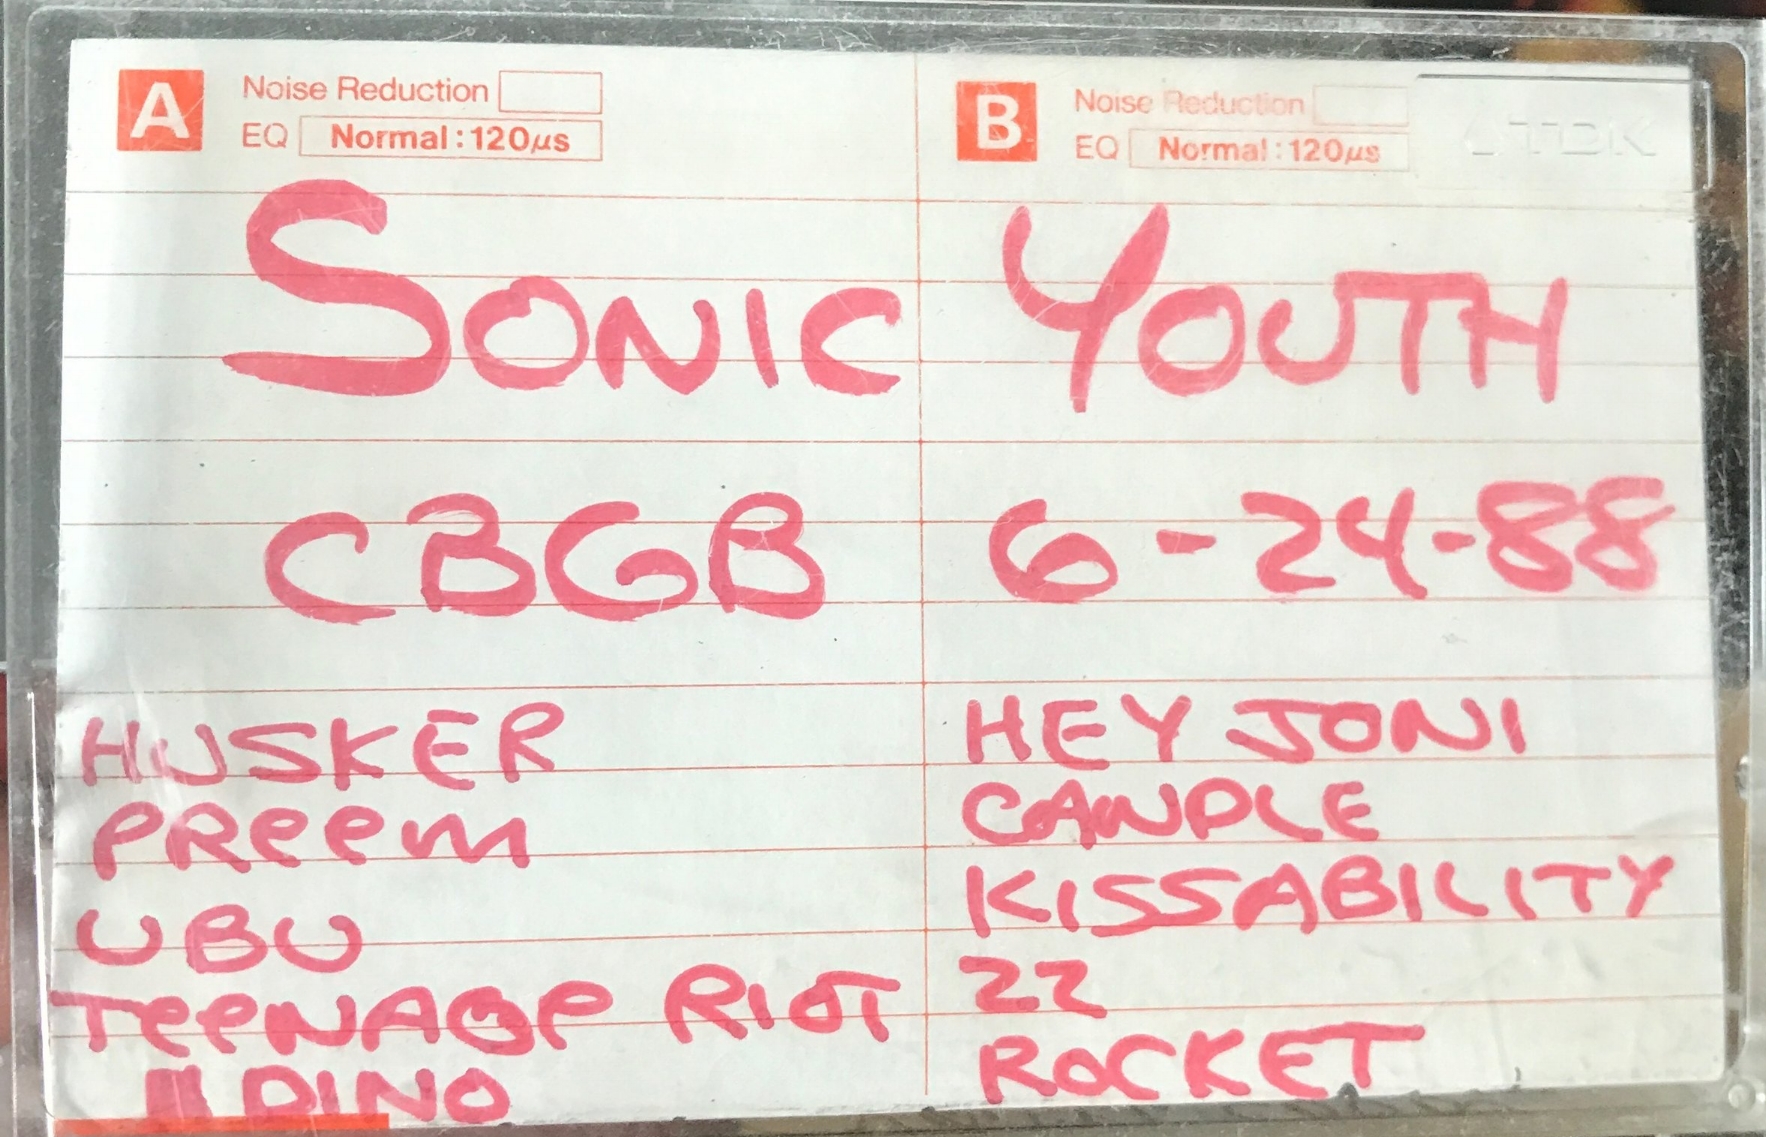 A Noise Reduction
EQ Normal:120μs
B Noise Reduction
EQ Normal:120μs
TDK
SONIC YOUTH
CBGB 6-24-88
HUSKER
PReem
UBU
TeeNAGe RIOT
DINO
HEY JONI
CANDLE
KISSABILITY
22
ROCKET